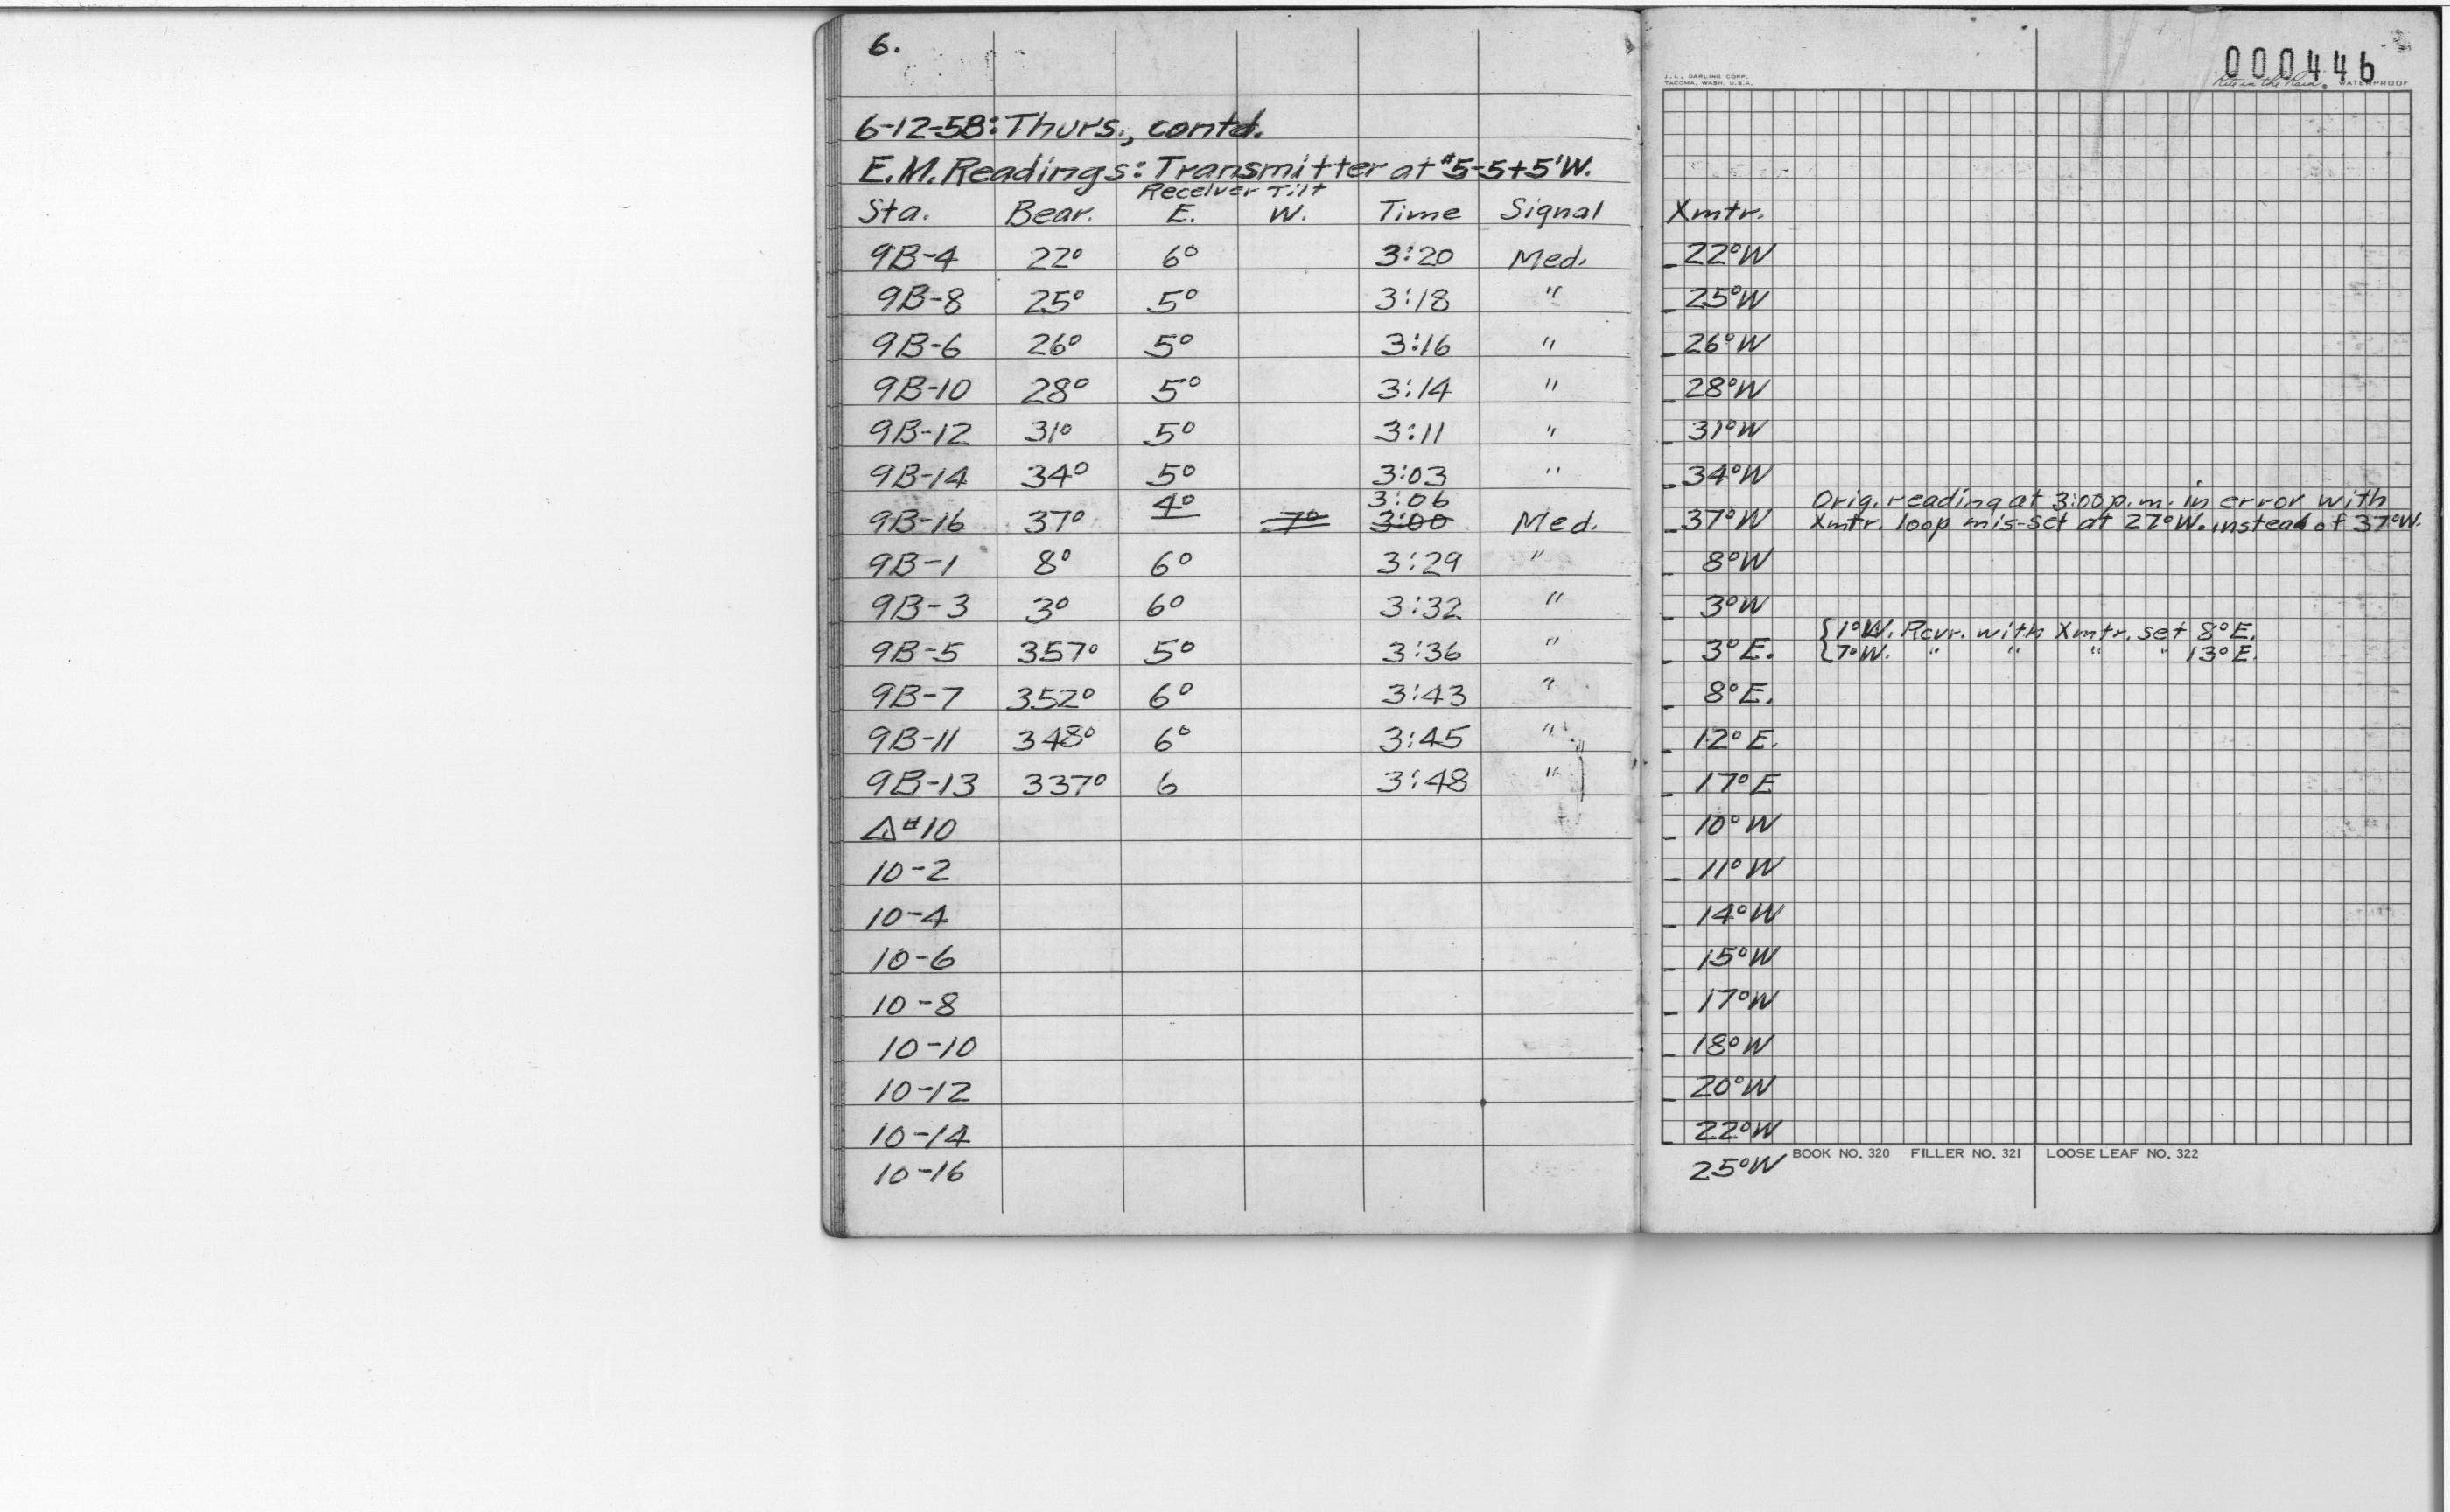 6.
000446
J. L. DARLING CORP.
TACOMA, WASH. U.S.A.
Rite in the Rain. WATERPROOF
6-12-58: Thurs., contd.
E.M. Readings: Transmitter at #5-5+5'W.
Receiver Tilt
Sta. Bear. E. W. Time Signal Xmtr.
9B-4 22° 6° 3:20 Med. 22°W
9B-8 25° 5° 3:18 " 25°W
9B-6 26° 5° 3:16 " 26°W
9B-10 28° 5° 3:14 " 28°W
9B-12 31° 5° 3:11 " 31°W
9B-14 34° 5° 3:03 " 34°W
4° 3:06 Orig. reading at 3:00 p.m. in error with
9B-16 37° 7° 3:00 Med. 37°W Xmtr. loop mis-set at 27°W. instead of 37°W.
9B-1 8° 6° 3:29 " 8°W
9B-3 3° 6° 3:32 " 3°W
{1°W. Rcvr. with Xmtr. set 8°E.
9B-5 357° 5° 3:36 " 3°E. {7°W. " " " " 13°E.
9B-7 352° 6° 3:43 " 8°E.
9B-11 348° 6° 3:45 " 12°E.
9B-13 337° 6 3:48 " 17°E
△#10 10°W
10-2 11°W
10-4 14°W
10-6 15°W
10-8 17°W
10-10 18°W
10-12 20°W
10-14 22°W
10-16 25°W
BOOK NO. 320 FILLER NO. 321 LOOSE LEAF NO. 322